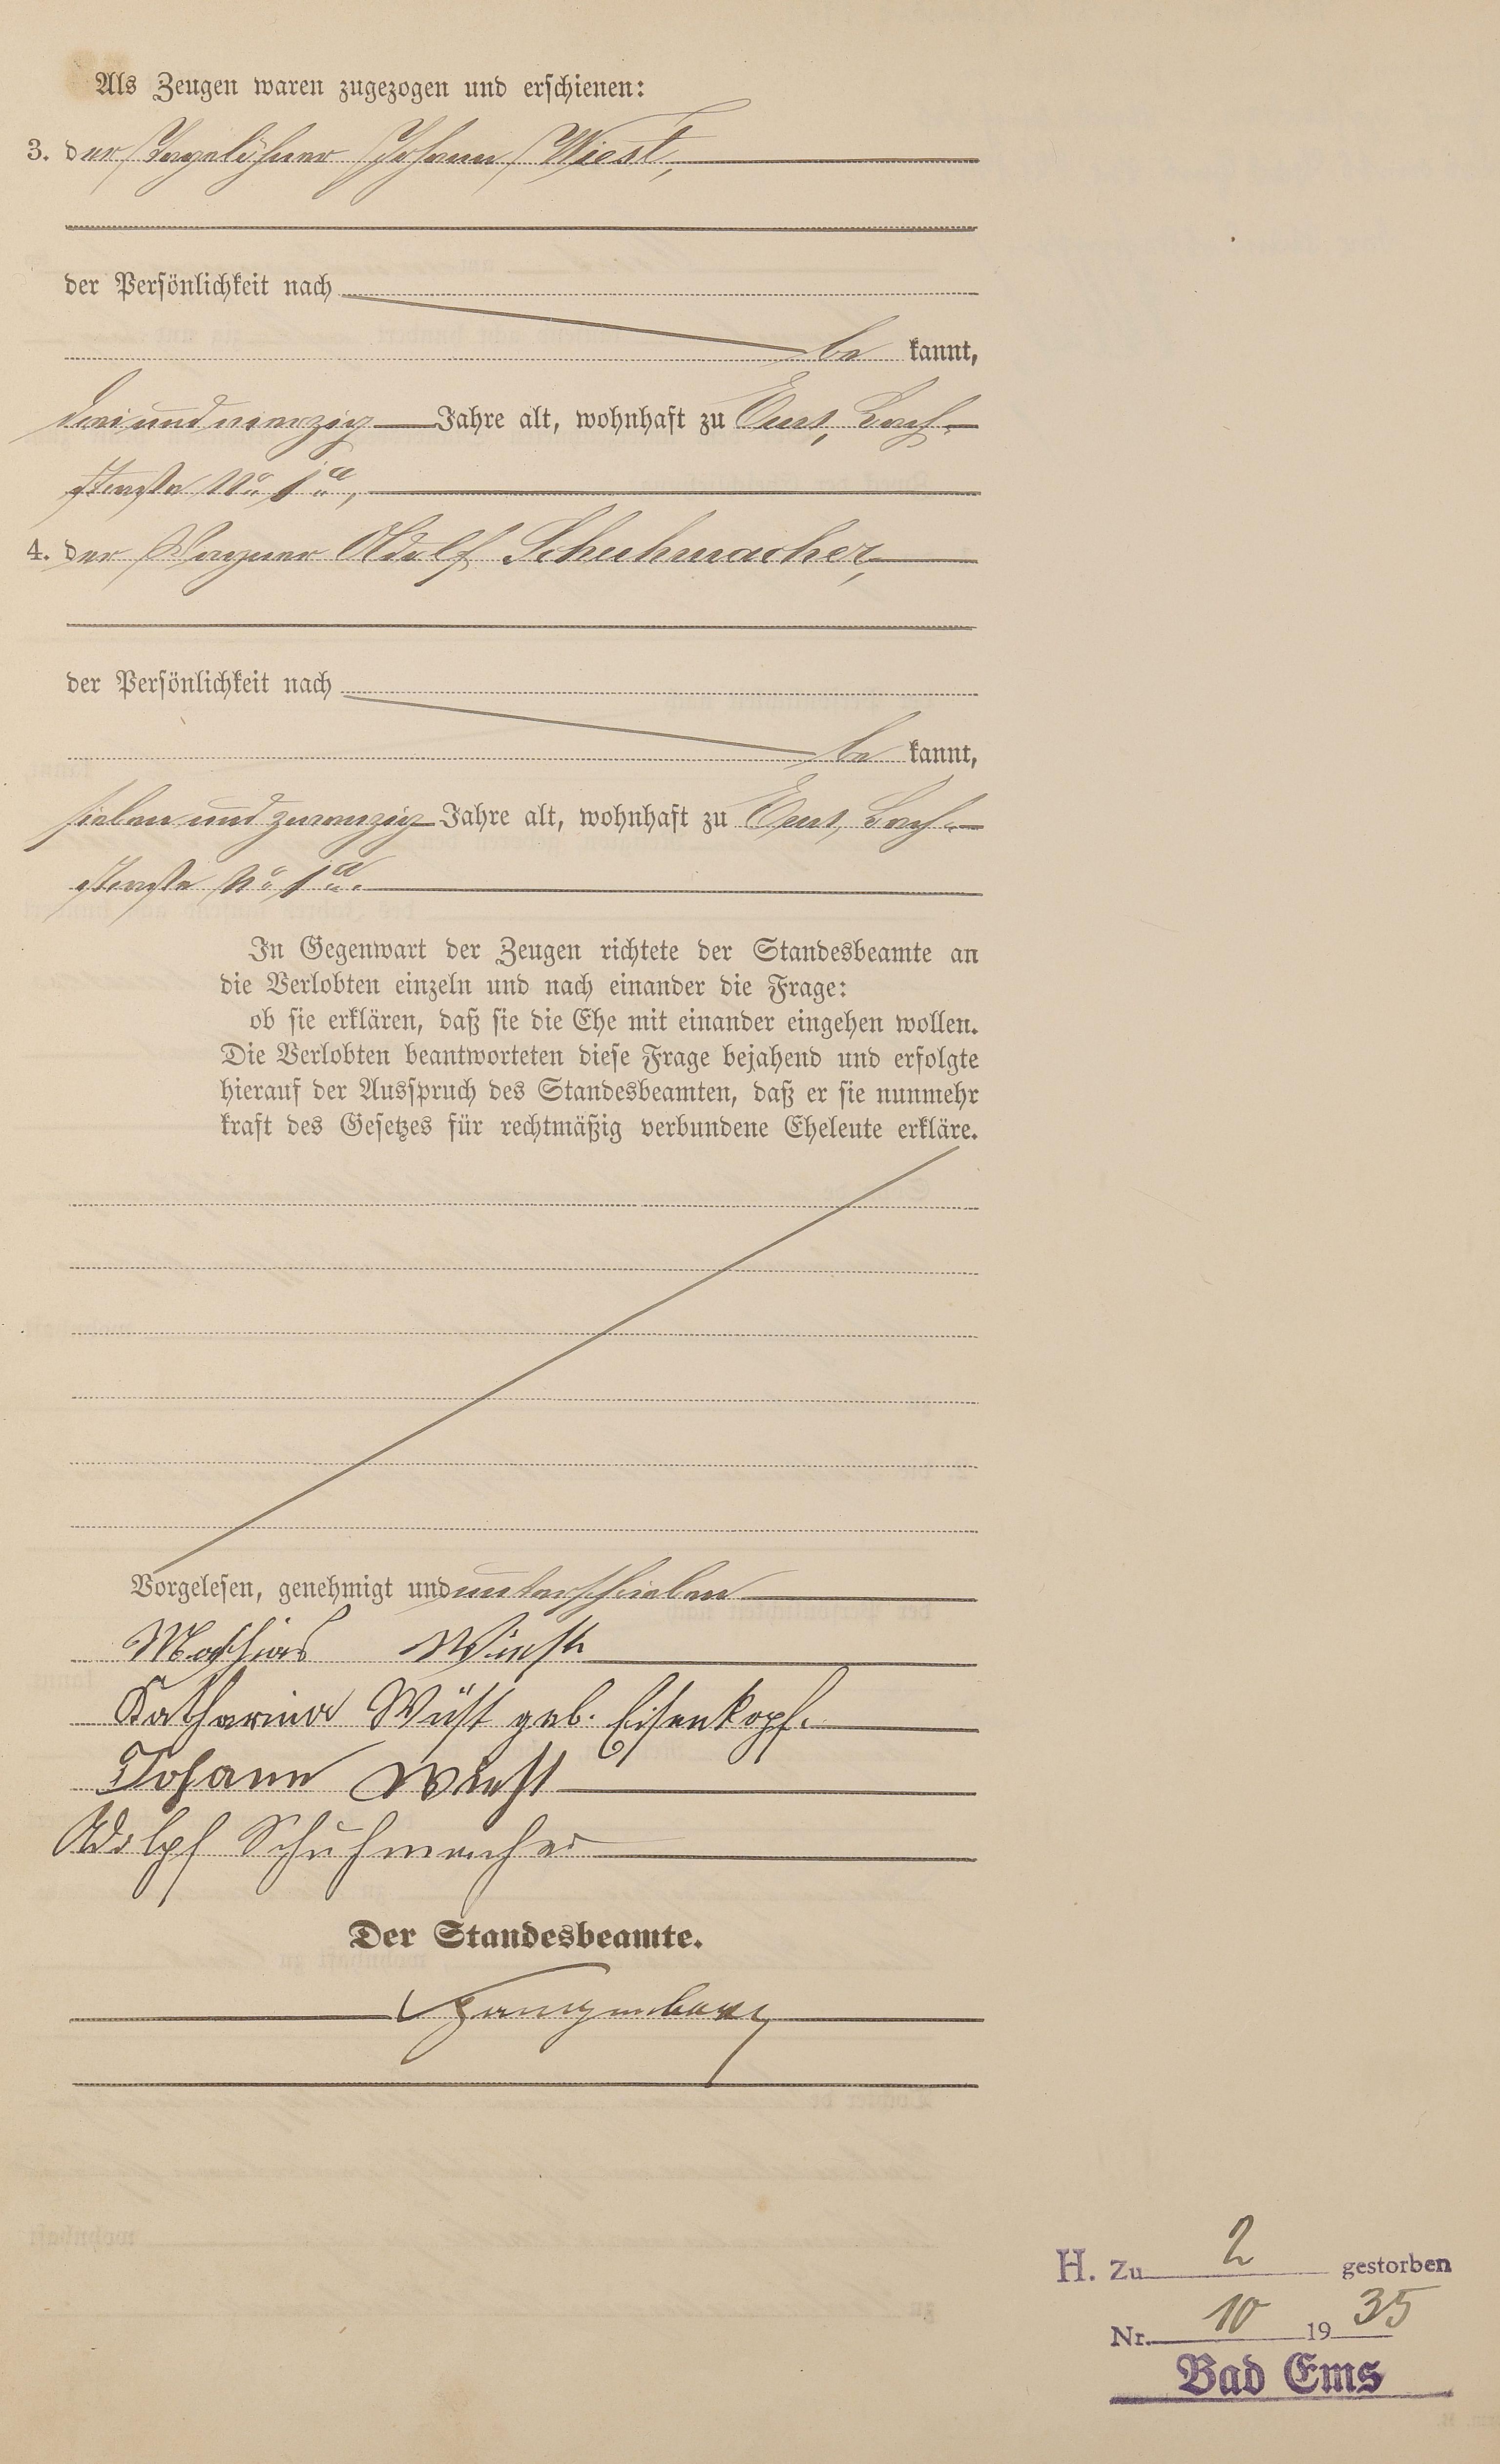 Als Zeugen waren zugezogen und erschienen:
3. der Tagelöhner Johann Wiest,
der Persönlichkeit nach
be kannt,
drei und vierzig Jahre alt, wohnhaft zu Ems, Bach-
straße No. 1a,
4. der Wagner Adolf Schuhmacher,
der Persönlichkeit nach
be kannt,
sieben und zwanzig Jahre alt, wohnhaft zu Ems, Bach-
straße No. 1a.
In Gegenwart der Zeugen richtete der Standesbeamte an
die Verlobten einzeln und nach einander die Frage:
ob sie erklären, daß sie die Ehe mit einander eingehen wollen.
Die Verlobten beantworteten diese Frage bejahend und erfolgte
hierauf der Ausspruch des Standesbeamten, daß er sie nunmehr
kraft des Gesetzes für rechtmäßig verbundene Eheleute erkläre.
Vorgelesen, genehmigt und unterschrieben
Mathias Wüest
Katharina Wüst geb. Eisenkopf.
Johann Wiest
Adolpf Schuhmacher
Der Standesbeamte.
H. Zu 2 gestorben
Nr. 10 1935
Bad Ems